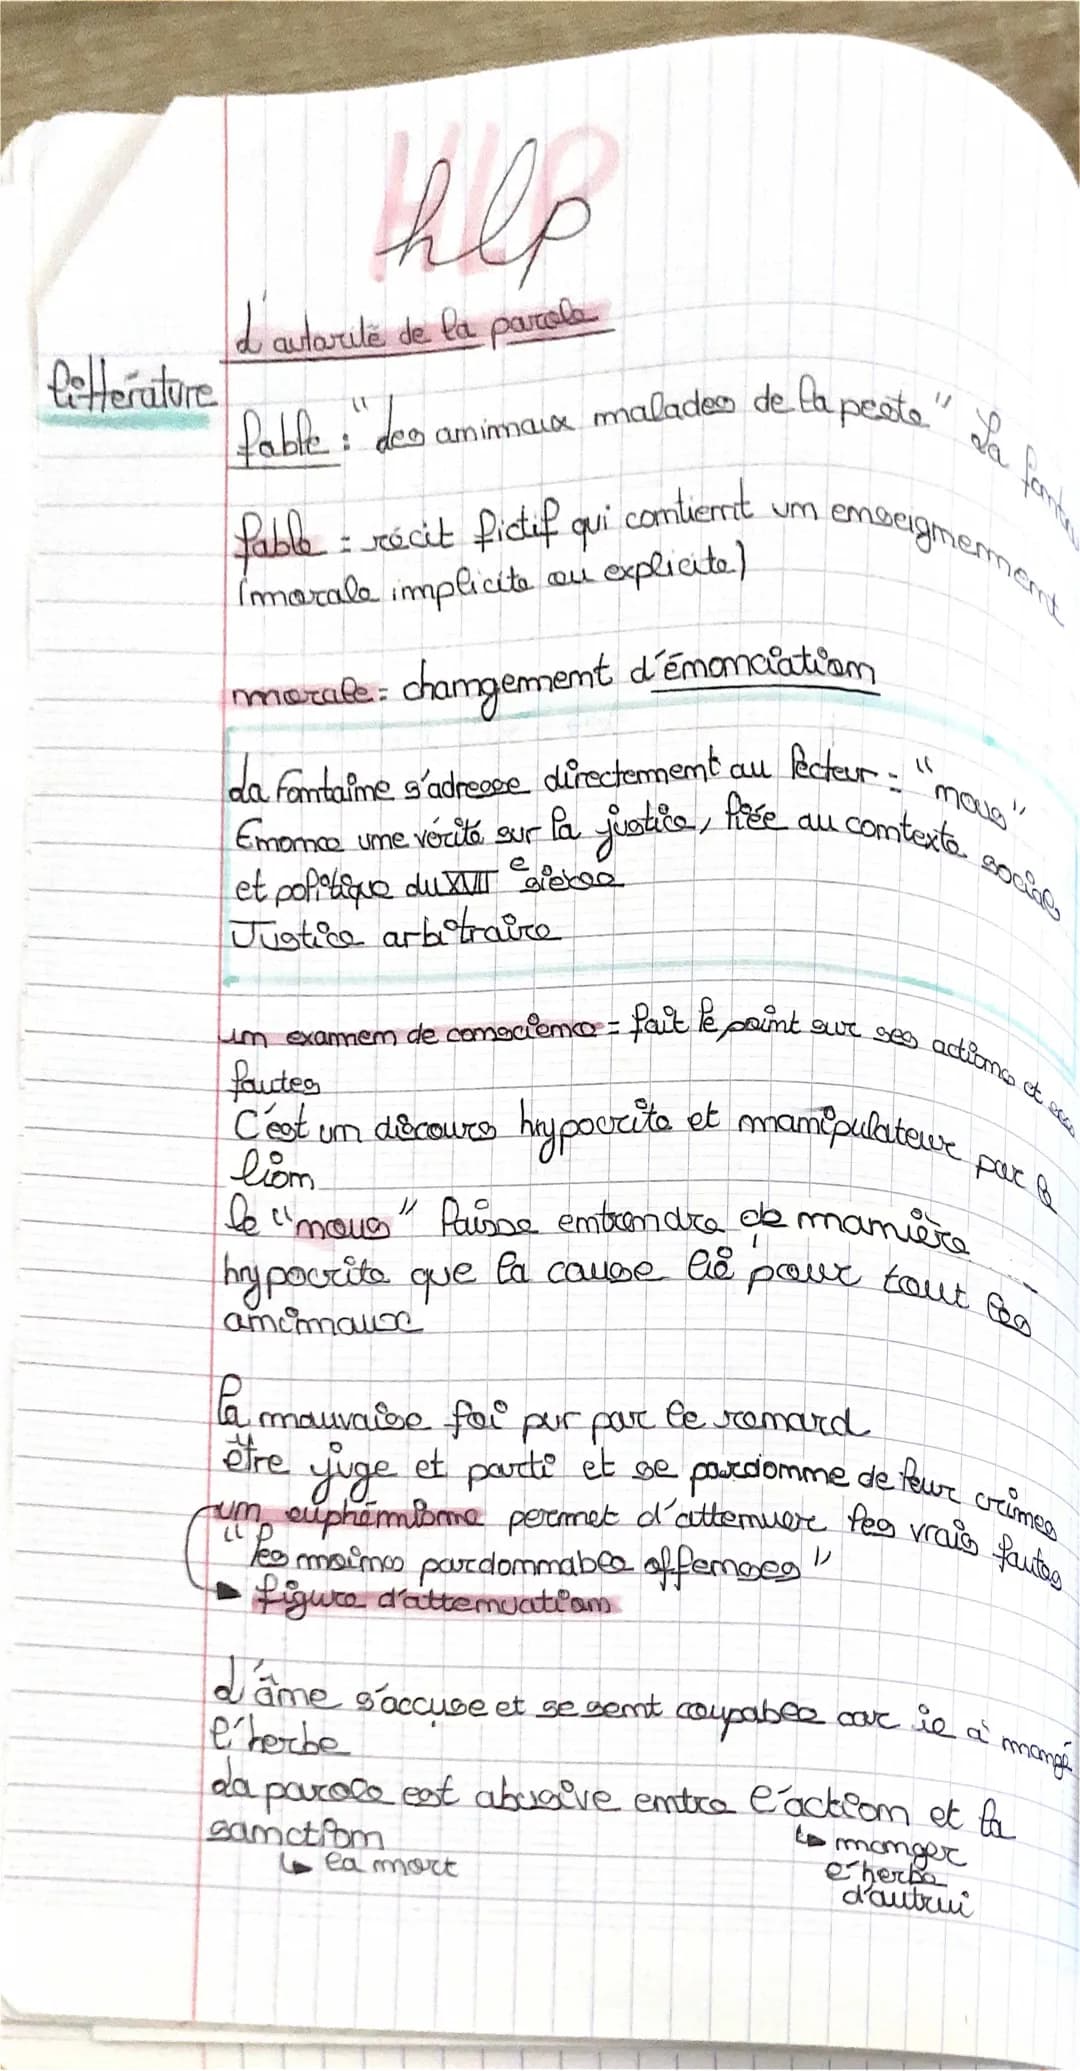 HLP
hlp
L'autorité de la parole
littérature
fable : "des animaux malades de la peste" La
fable = récit fictif qui contient un enseignement
(morale implicite ou explicite)
morale = changement d'énonciation
La Fontaine s'adresse directement au lecteur = "nous"
Enonce une vérité sur la justice, liée au contexte sociale
et politique du XVII e siècle
Justice arbitraire
un examen de conscience = fait le point sur ses actions et ses
fautes
C'est un discours hypocrite et manipulateur par le
lion
le "nous" laisse entendre de manière
hypocrite que la cause lié pour tout les
animaux
la mauvaise foi pur par le renard
être juge et parti et se pardonne de leur crimes
un euphémisme permet d'attenuer les vrais fautes
"les moines pardonnables offenses"
▶ figure d'attenuation
L'âme s'accuse et se sent coupable car il a mangé
l'herbe
La parole est abusive entre l'action et la
sanction
↳ manger
l'herbe
d'autrui
↳ la mort